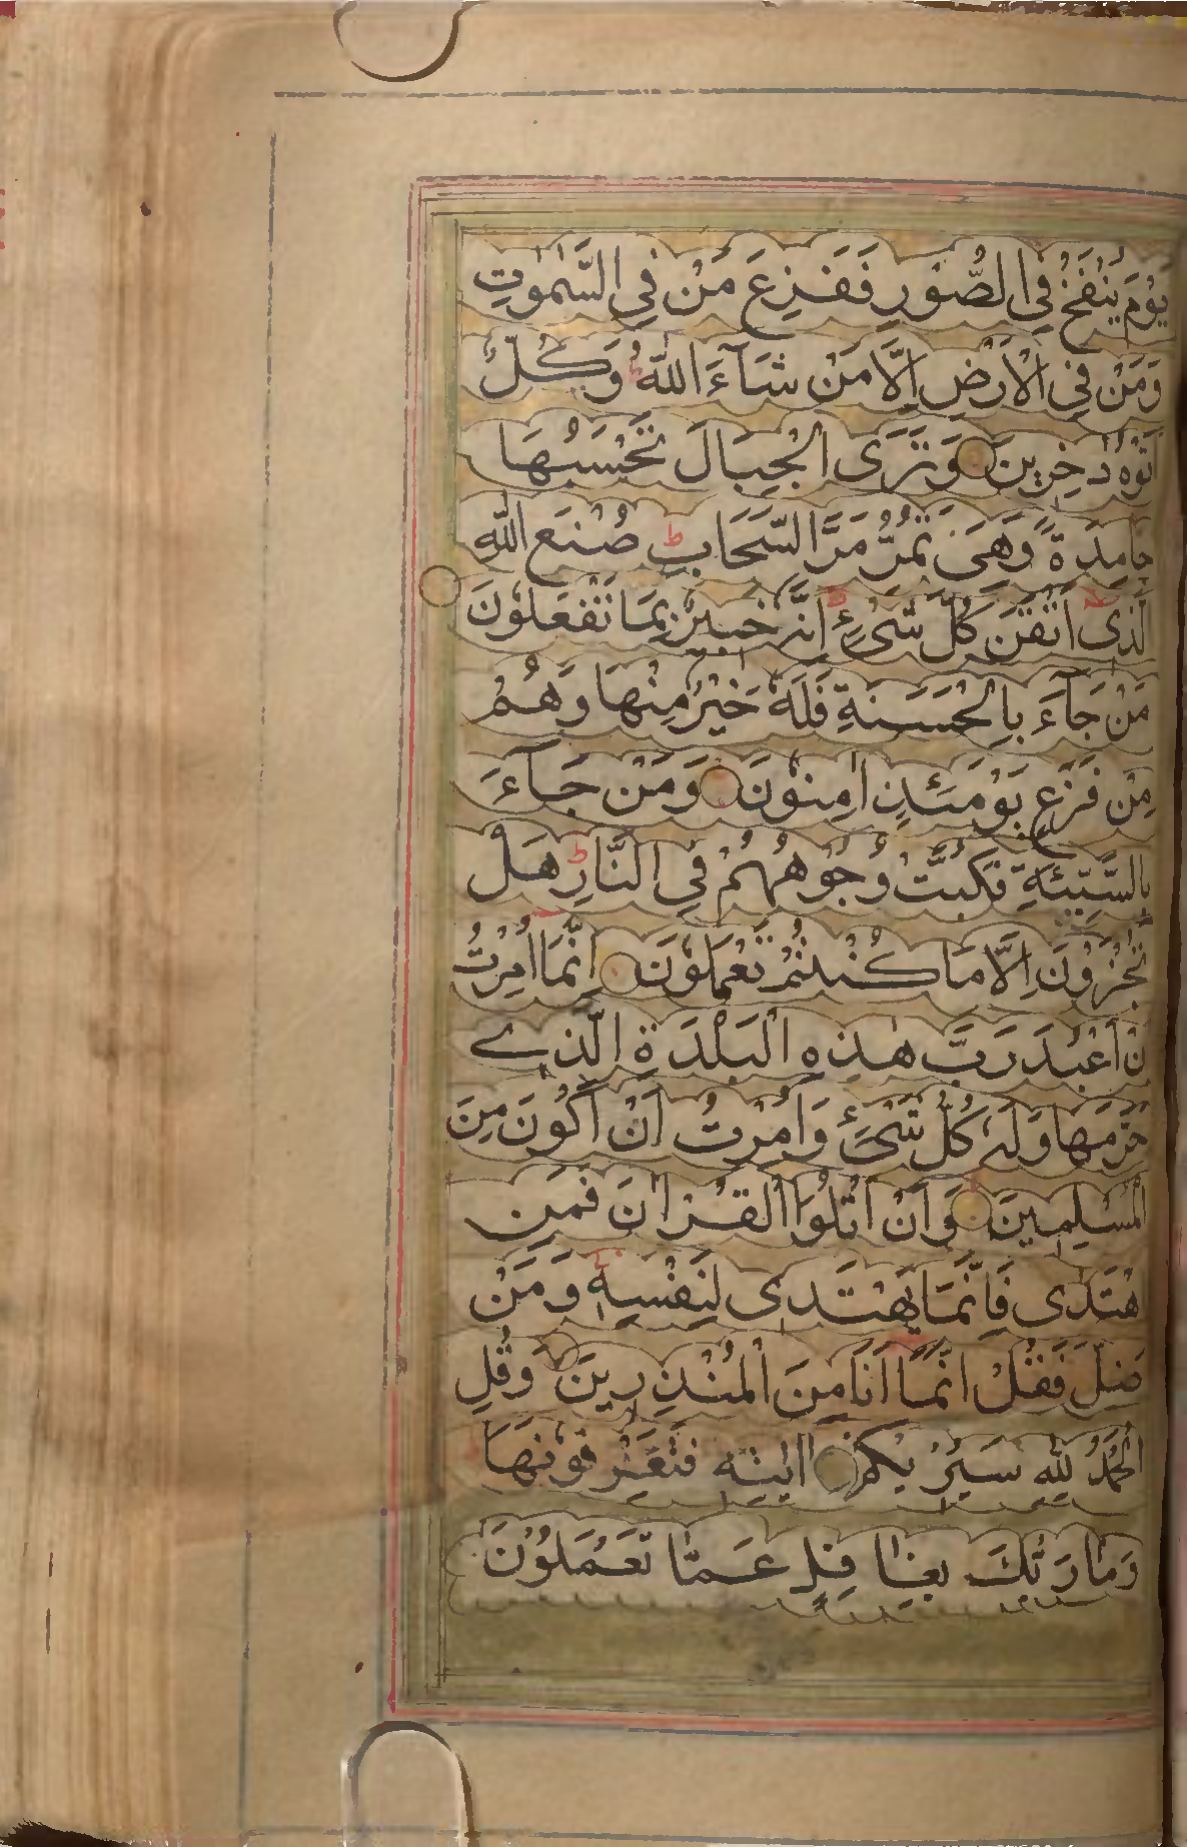 يَوْمَ يُنْفَخُ فِي الصُّوْرِ فَفَزِعَ مَنْ فِي السَّمٰوٰتِ
وَمَنْ فِي الْاَرْضِ اِلَّا مَنْ شَآءَ اللّٰهُ ؕ وَكُلٌّ
اَتَوْهُ دٰخِرِيْنَ وَتَرَى الْجِبَالَ تَحْسَبُهَا
جَامِدَةً وَّهِيَ تَمُرُّ مَرَّ السَّحَابِ ؕ صُنْعَ اللّٰهِ
الَّذِيْ اَتْقَنَ كُلَّ شَيْءٍ ؕ اِنَّهٗ خَبِيْرٌۢ بِمَا تَفْعَلُوْنَ
مَنْ جَآءَ بِالْحَسَنَةِ فَلَهٗ خَيْرٌ مِّنْهَا وَهُمْ
مِّنْ فَزَعٍ يَّوْمَئِذٍ اٰمِنُوْنَ وَمَنْ جَآءَ
بِالسَّيِّئَةِ فَكُبَّتْ وُجُوْهُهُمْ فِي النَّارِ ؕ هَلْ
تُجْزَوْنَ اِلَّا مَا كُنْتُمْ تَعْمَلُوْنَ اِنَّمَا اُمِرْتُ
اَنْ اَعْبُدَ رَبَّ هٰذِهِ الْبَلْدَةِ الَّذِيْ
حَرَّمَهَا وَلَهٗ كُلُّ شَيْءٍ وَاُمِرْتُ اَنْ اَكُوْنَ مِنَ
الْمُسْلِمِيْنَ وَاَنْ اَتْلُوَا الْقُرْاٰنَ فَمَنِ
اهْتَدٰى فَاِنَّمَا يَهْتَدِيْ لِنَفْسِهٖ وَمَنْ
ضَلَّ فَقُلْ اِنَّمَا اَنَا مِنَ الْمُنْذِرِيْنَ وَقُلِ
الْحَمْدُ لِلّٰهِ سَيُرِيْكُمْ اٰيٰتِهٖ فَتَعْرِفُوْنَهَا
وَمَا رَبُّكَ بِغَافِلٍ عَمَّا تَعْمَلُوْنَ